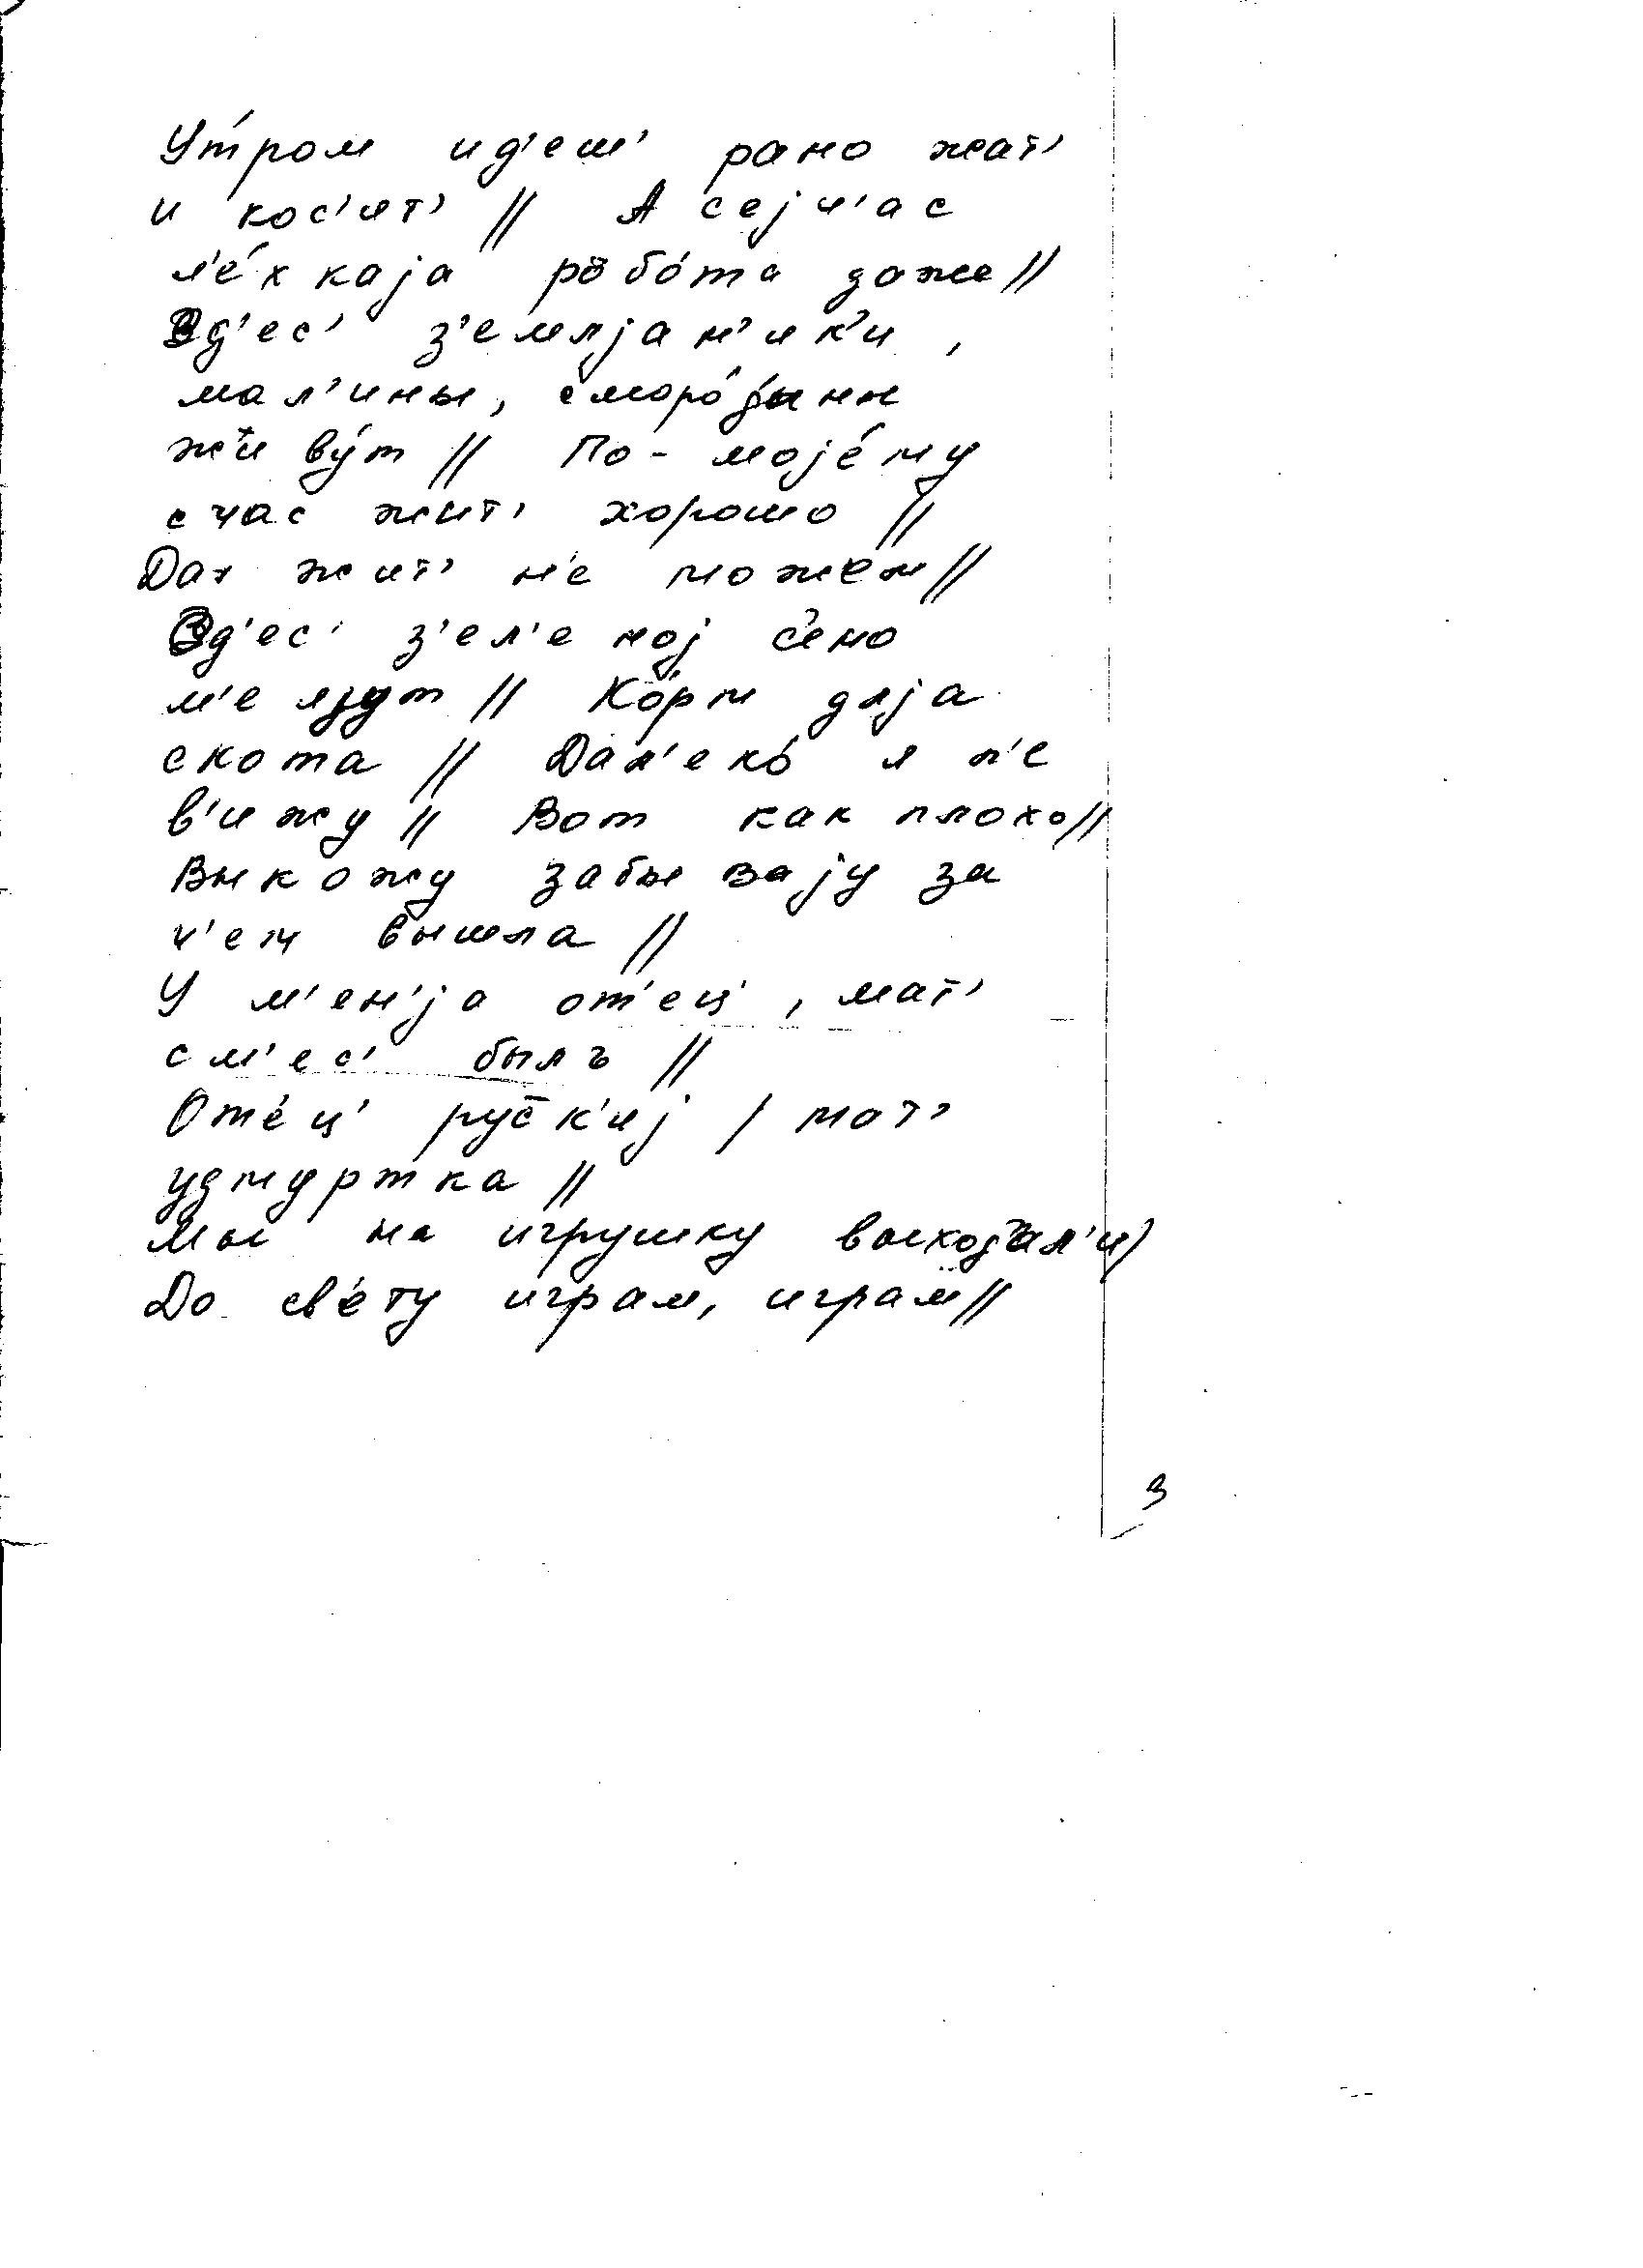 У́тром ид'еш' рано жат'
и кос'ит' // А сејч'ас
л'е́хкаја робо́та даже //
Зд'ес' з'емлјан'ик'и,
мал'ины, сморо́дыны
живу́т // По-моје́му
счас жит' хорошо //
Дак жит' н'е можем //
Зд'ес' з'ел'еној с'ено
м'е язут // Ко́рм дљја
скота // Дал'еко́ я н'е
в'ижу // Вот как плохо //
Выхожу забывају за
ч'ем вышла //
У м'ен'ја от'ец', мат'
см'ес' былъ //
Оте́ц' рус̄к'иј / мат'
удмуртка //
Мы на игрушку выход'ал'и /
До св'е́ту играм, играм //
3